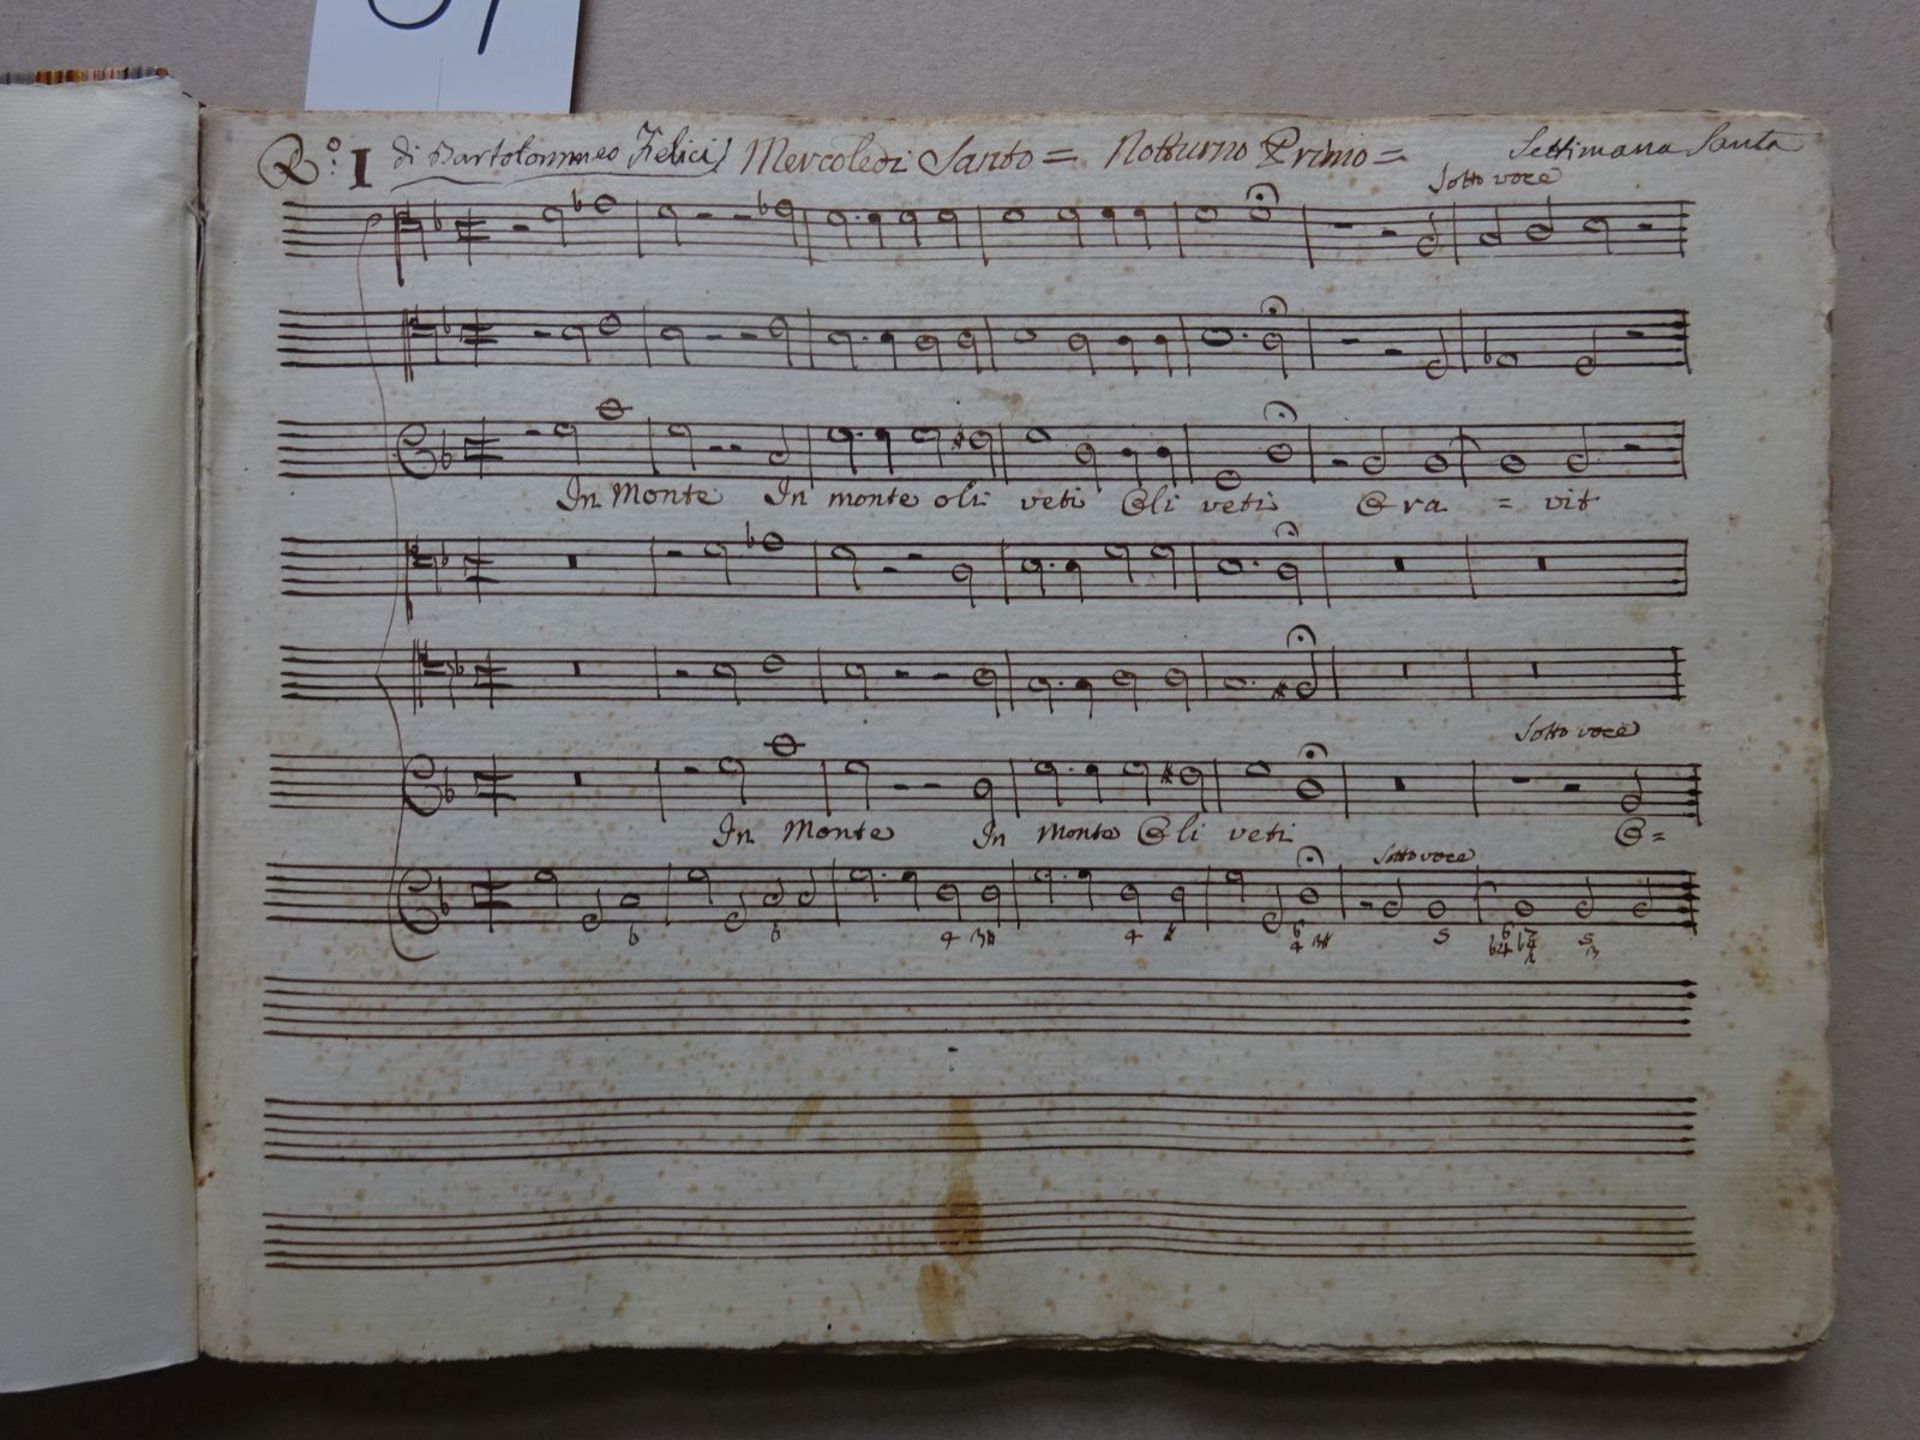 R.º I di Bartolommeo Felici Mercoledi Santo = Notturno Primo = Settimana Santa
Sotto voce
In Monte In monte oli veti Oli veti O ra = vit
Sotto voce
In Monte In Monte Oli veti O=
Sotto voce
b b 4 3# 4 # 6 4 3# 5